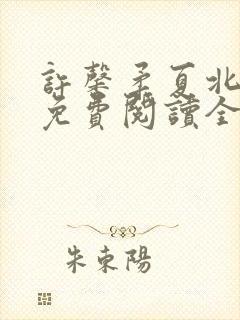 許馨矛夏北
免費閱讀全
朱東陽